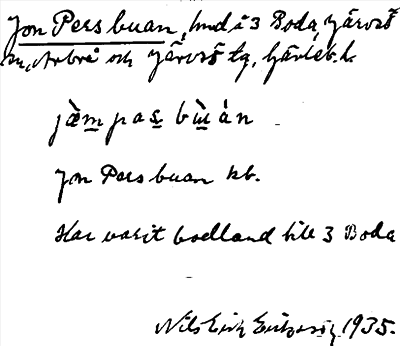 Jon Pers buan, hmd i 3 Boda, Järvsö
sn, Arbrå och Järvsö tg, Gävleb. l.
jæ̀m pas bɯ̀ án
Jon Pers buan kb.
Har varit bodland till 3 Boda
Nils Erik 1935.